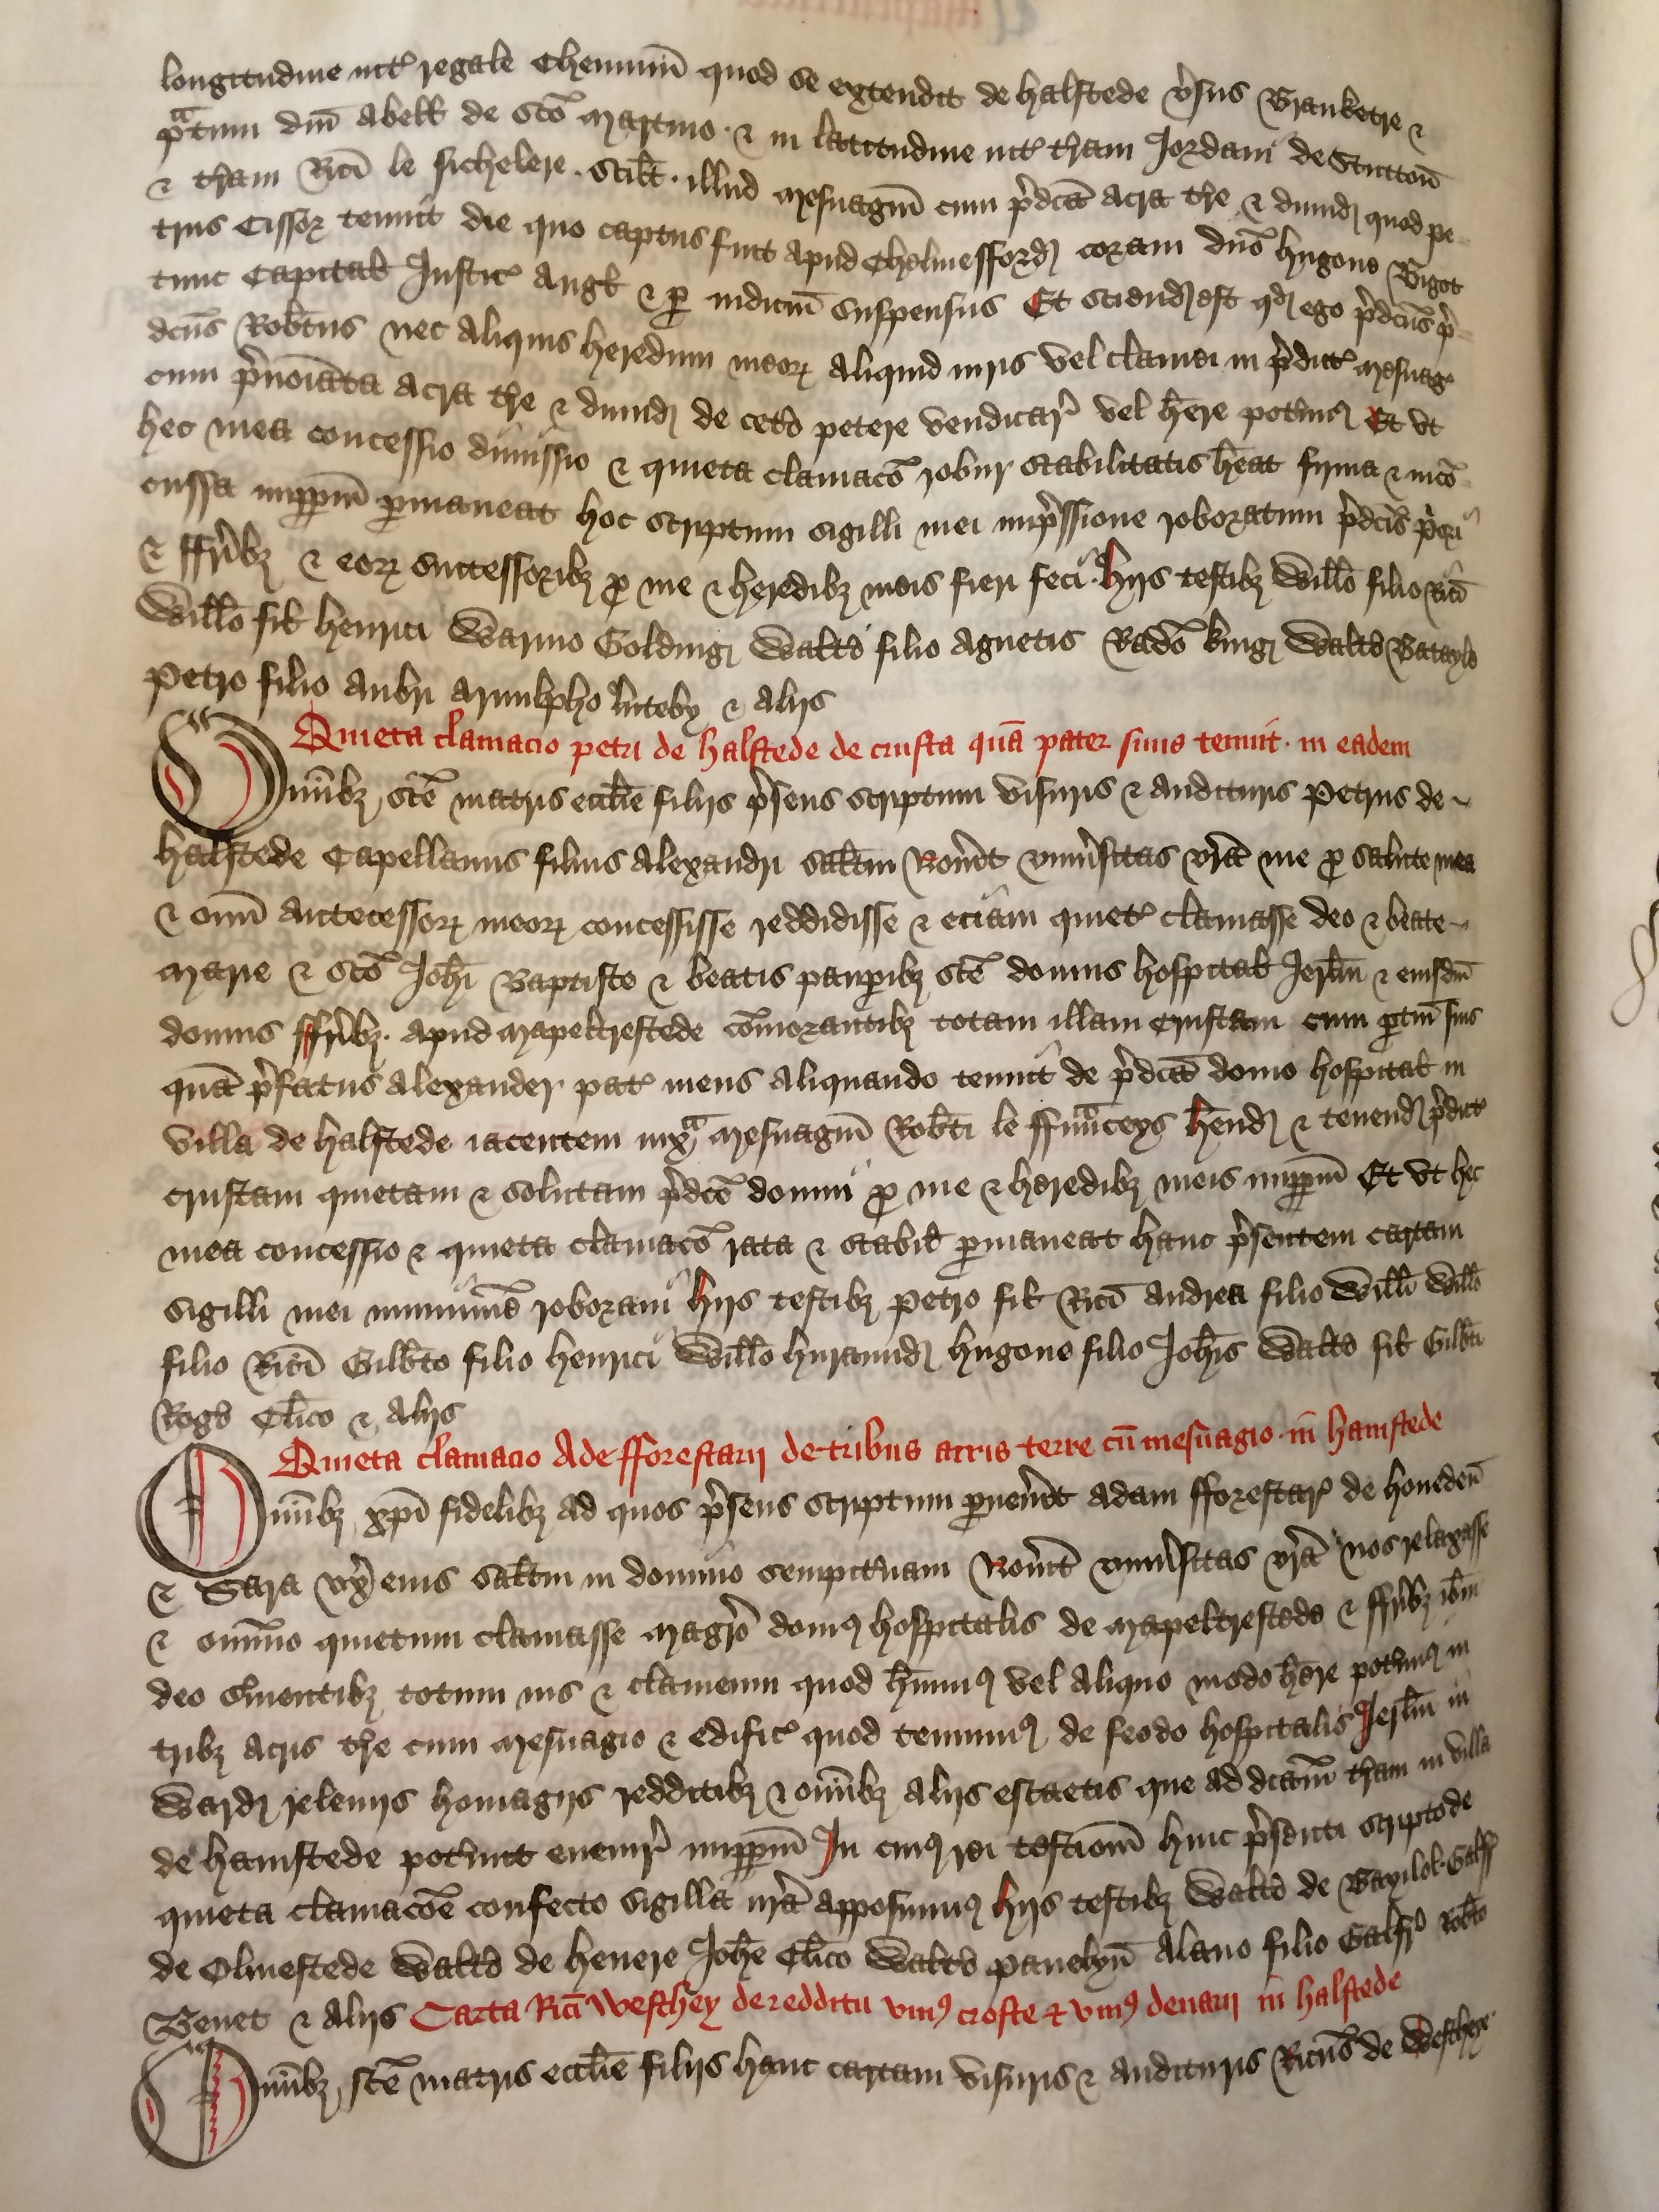 longitudine int' regale Cheminū quod se extendit de halstede v'sus Branketre &
p<sup>a</sup>tum dñi Abell de Sc̄o Martino · & in latitudine int' t'ram Jordani de Stuttoñ
& t'ram Ric̄i le sichelere · Scilt · illud mesuagiū cum p'dc̄a acra t're & dimid quod pe
trus Cissor tenuit die quo captus fuit apud Chelmesfford coram dño hugone Bigot
tunc Capitali Justic' Angl & p iudiciū suspensus Et sciend est qd ego p'dcūs p'
dcūs Robtus nec aliquis heredum meor aliquid iuris vel clamei in p'dict' mesuag'
cum p'noīata acra t're & dimid de cet'o petere vendicar' vel h'ere pot'im9 Et vt
hec mea concessio dimissio & quieta clamac̄o robur stabilitatis h'eat firma & inco
cussa imppm̄ pmaneat hoc scriptum sigilli mei imp'ssione roboratum p'dc̄is p'ori
& ffr'ibz & eor successoribz p me & heredibz meis fieri feci · hijs testibz Willo filio Ric̄i
Willo fil henrici Warino Golding Walto filio Agnetis Rado king Walto Batayle
Petro filio Aubri Arnulpho luteby & alijs
Quieta clamacio petri de halstede de crufta quā pater suus tenuit · in eadem
Omībz sc̄e matris eccl̄ie filijs p'sens scriptum visuris & audituris Petrus de
halstede Capellanus filius Alexandri saltm Nou'it vniu'sitas vr̄a me p salute mea
& omī antecessor meor concessisse reddidisse & eciam quiet' clamasse deo & beate
Marie & sc̄o Joh̄i Baptiste & beatis paup'ibz sc̄e domus hospital Jerlm̄ & eiusdm̄
domus ffr'ibz · apud Mapeltrestede cōmorantibz totam illam Cruftam cum ptin̄ suis
quā p'fatus Alexander pat' meus aliquando tenuit de p'dc̄a domo hospital in
villa de halstede iacentem iux<sup>a</sup> mesuagiū Robti le ffraūceys hend & tenend p'dict'
cruftam quietam & solutam p'dc̄e domui p me & heredibz meis imppm̄ Et vt hec
mea concessio & quieta clamac̄o rata & stabil pmaneat hanc p'sentem cartam
sigilli mei munimīe roboraui hijs testibz Petro fil Ric̄i Andrea filio Willi Willo
filio Ric̄i Gilbto filio henrici Willo huraund hugone filio Joh̄is Walto fil Gilbti
Rog'o Cl̄ico & alijs
Quieta clamacio Ade fforestarij de tribus acris terre cū mesuagio · in hamstede
Omībz xp̄i fidelibz ad quos p'sens scriptum pue'nit Adam fforestar' de honedeñ
& Sara vx' eius saltm in domino sempit'nam Nou'it vniu'sitas vr̄a nos relaxasse
& omīno quietum clamasse Magr̄o dom9 hospitalis de Mapeltrestede & ffr'ibz ib̄m
deo s'uientibz totum ius & clameum quod h̄uim9 vel aliquo modo h̄ere pot'im9 in
tribz acris t're cum mesuagio & edific' quod tenuim9 de feodo hospitalis Jerlm̄ in
Ward releuijs homagijs redditibz & omībz alijs escaetis que ad dictam t'ram in villa
de hamstede pot'unt euenir' imppm̄ In cui9 rei testiom̄ huic p'senti scripto de
quieta clamac̄oe confecto sigilla nr̄a apposuim9 hijs testibz Walto de Bayllol Galff'
de Olmestede Walto de heuere Joh̄e Cl̄ico Walto pauelyñ Alano filio Galfr' Robto
Benet & alijs Carta Ric̄i Westhey de redditu vni9 crofte & vni9 denarij in halstede
Omībz sc̄e matris eccl̄ie filijs hanc cartam visuris & audituris Ric̄us de Westheye